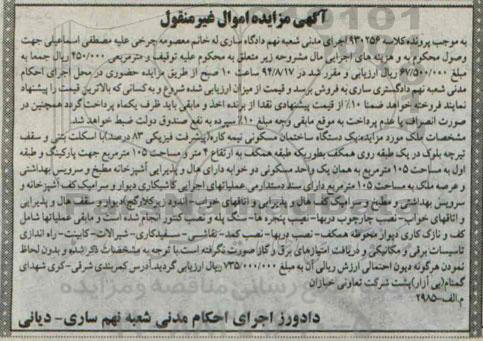 آگهی مزایده اموال غیر منقول
به موجب پرونده کلاسه ۹۳۰۲۵۶ اجرای مدنی شعبه نهم دادگاه ساری له خانم معصومه چرخی علیه مصطفی اسماعیلی جهت
وصول محکوم به و هزینه های اجرایی مال مشروحه زیر متعلق به محکوم علیه توقیف و در مرحله ۴۵۰/۰۰۰ ریال جمعا به
مبلغ ۶۷/۵۰۰/۰۰۰ ریال ارزیابی و مقرر شد در ۹۴/۸/۱۷ ساعت ۱۰ صبح از طریق مزایده حضوری در محل اجرای احکام
مدنی شعبه نهم دادگستری ساری به فروش برسد و قیمت از میزان ارزیابی شده شروع و به کسانی که بالاترین قیمت را پیشنهاد
نمایند فروخته خواهد شد ضمنا ۱۰٪ از قیمت پیشنهادی نقدا از برنده اخذ و مابقی باید ظرف یکماه پرداخت گردد همچنین در
صورت انصراف یا عدم پرداخت به موقع مابقی وجه مبلغ ۱۰٪ سپرده به نفع صندوق دولت ضبط خواهد شد.
مشخصات ملک مورد مزایده: یک دستگاه ساختمان مسکونی نیمه کاره (پیشرفت فیزیکی ۸۳ درصد) با اسکلت بتنی و سقف
تیرچه بلوک در یک طبقه روی همکف بطوریکه طبقه همکف به ارتفاع ۲ متر و مساحت ۱۰۵ مترمربع جهت پارکینگ و طبقه
اول به مساحت ۱۰۵ مترمربع به همان یک واحد مسکونی دو خوابه دارای هال و پذیرایی آشپزخانه مطبخ و سرویس بهداشتی
و عرصه ملک به مساحت ۱۰۵ مترمربع دارای سند دستدارمی عملیاتهای اجرایی کاشیکاری دیوار و سرامیک کف آشپزخانه و
سرویس بهداشتی و مطبخ و سرامیک کف هال و پذیرایی و اتاقهای خواب- اندود زیرکار (گچ) دیوار و سقف هال و پذیرایی
و اتاقهای خواب- نصب چارچوب دربها- نصب پنجره ها- سنگ پله و نصب کنتور انجام شده است و مابقی عملیاتها شامل
کف و نازک کاری دیوار محوطه همکف- نصب دربها- نصب کمد- نقاشی- سفیدکاری- شیرالات- کابینت- راه اندازی
تاسیسات برقی و مکانیکی و دریافت امتیازهای برق و گاز صورت نگرفته است. با توجه به مشخصات ذکر شده و بدون لحاظ
نمودن هرگونه دیون احتمالی ارزش ریالی آن به مبلغ ۷۳۵/۰۰۰/۰۰۰ ریال ارزیابی گردید. آدرس کمربندی شرقی- کوی شهدای
گمنام (بی آزار) پشت شرکت تعاونی خبازان
م.الف-۲۹۸۵
دادورز اجرای احکام مدنی شعبه نهم ساری- دیانی